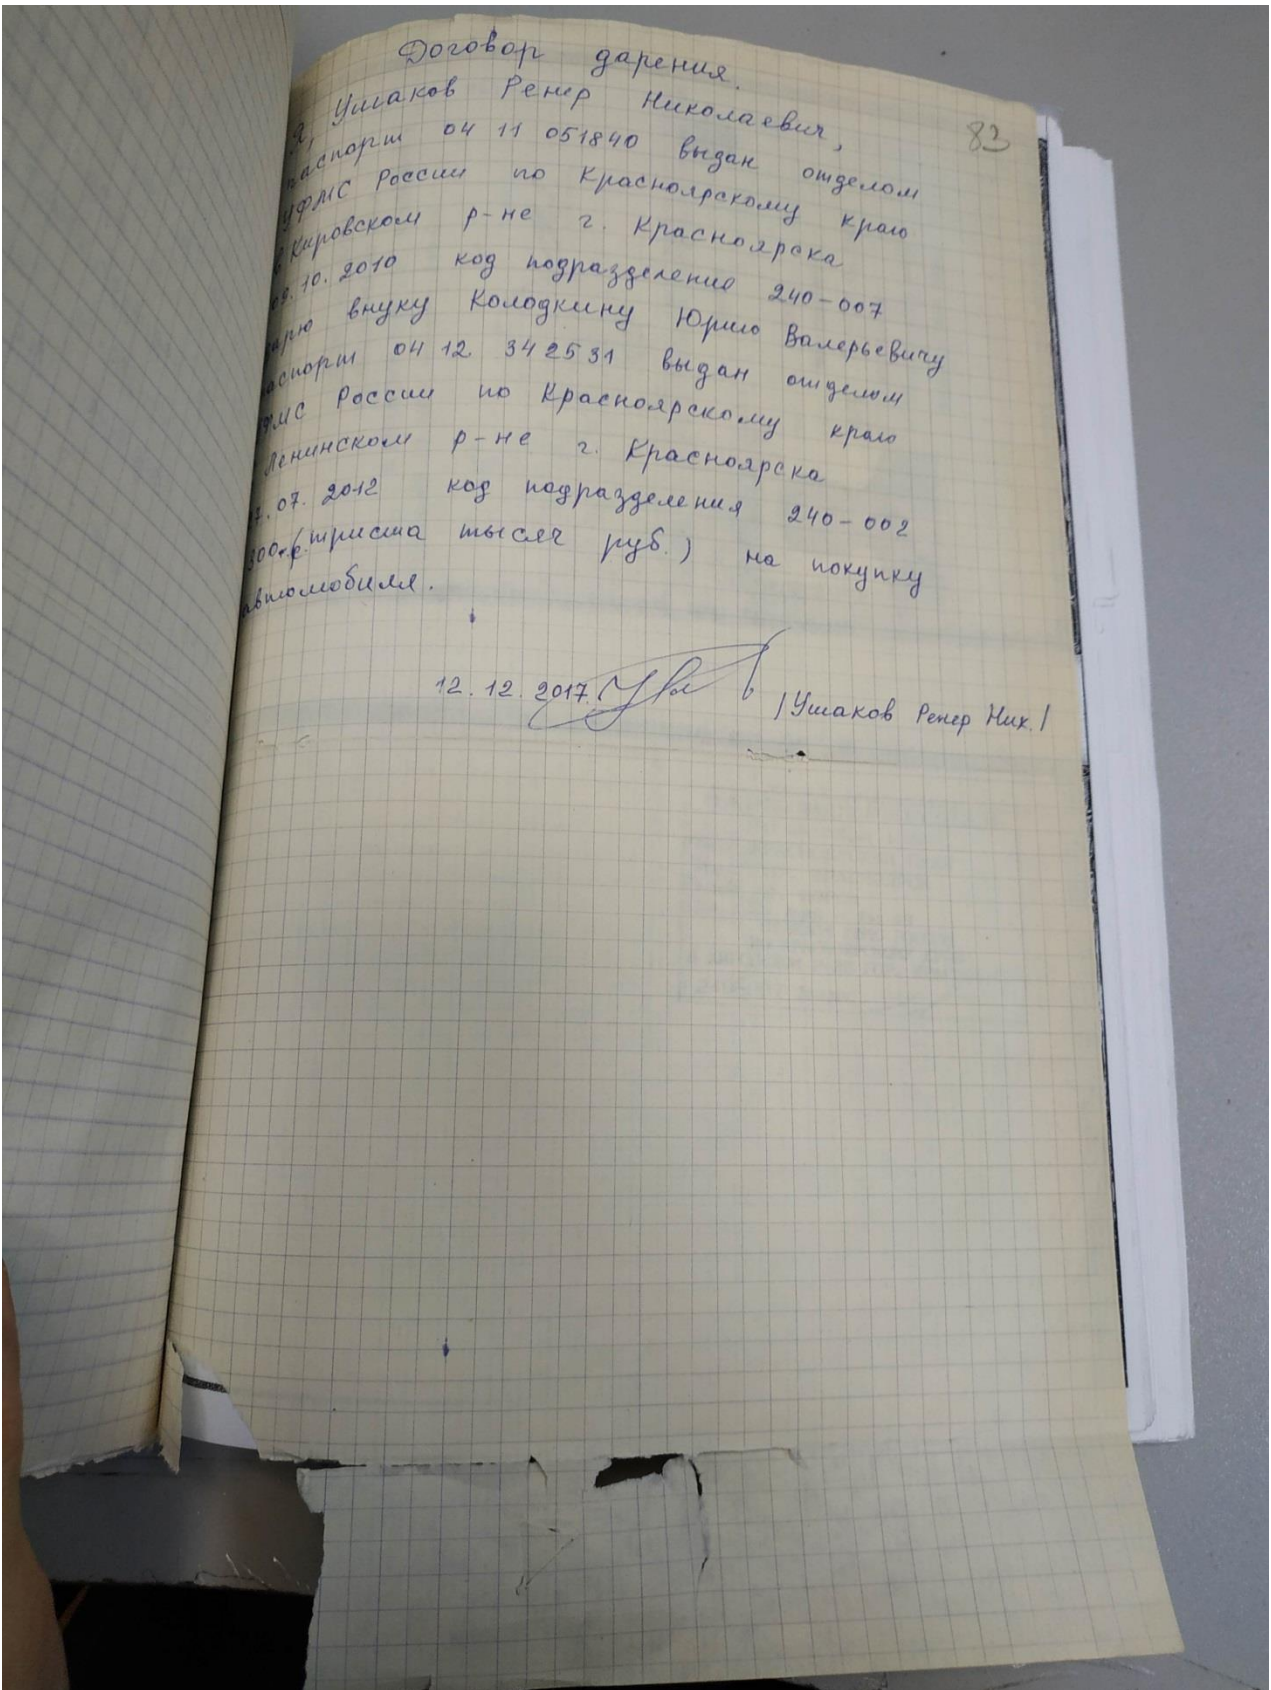 83
Договор дарения.
Я, Ушаков Ренер Николаевич,
паспорт 04 11 051840 выдан отделом
УФМС России по Красноярскому краю
в Кировском р-не г. Красноярска
09.10.2010 код подразделение 240-007
дарю внуку Колодкину Юрию Валерьевичу
аспорт 04 12 342531 выдан отделом
ФМС России по Красноярскому краю
Ленинском р-не г. Красноярска
7.07.2012 код подразделения 240-002
(триста тысяч руб.) на покупку
автомобиля.
12.12.2017. /Ушаков Ренер Ник./